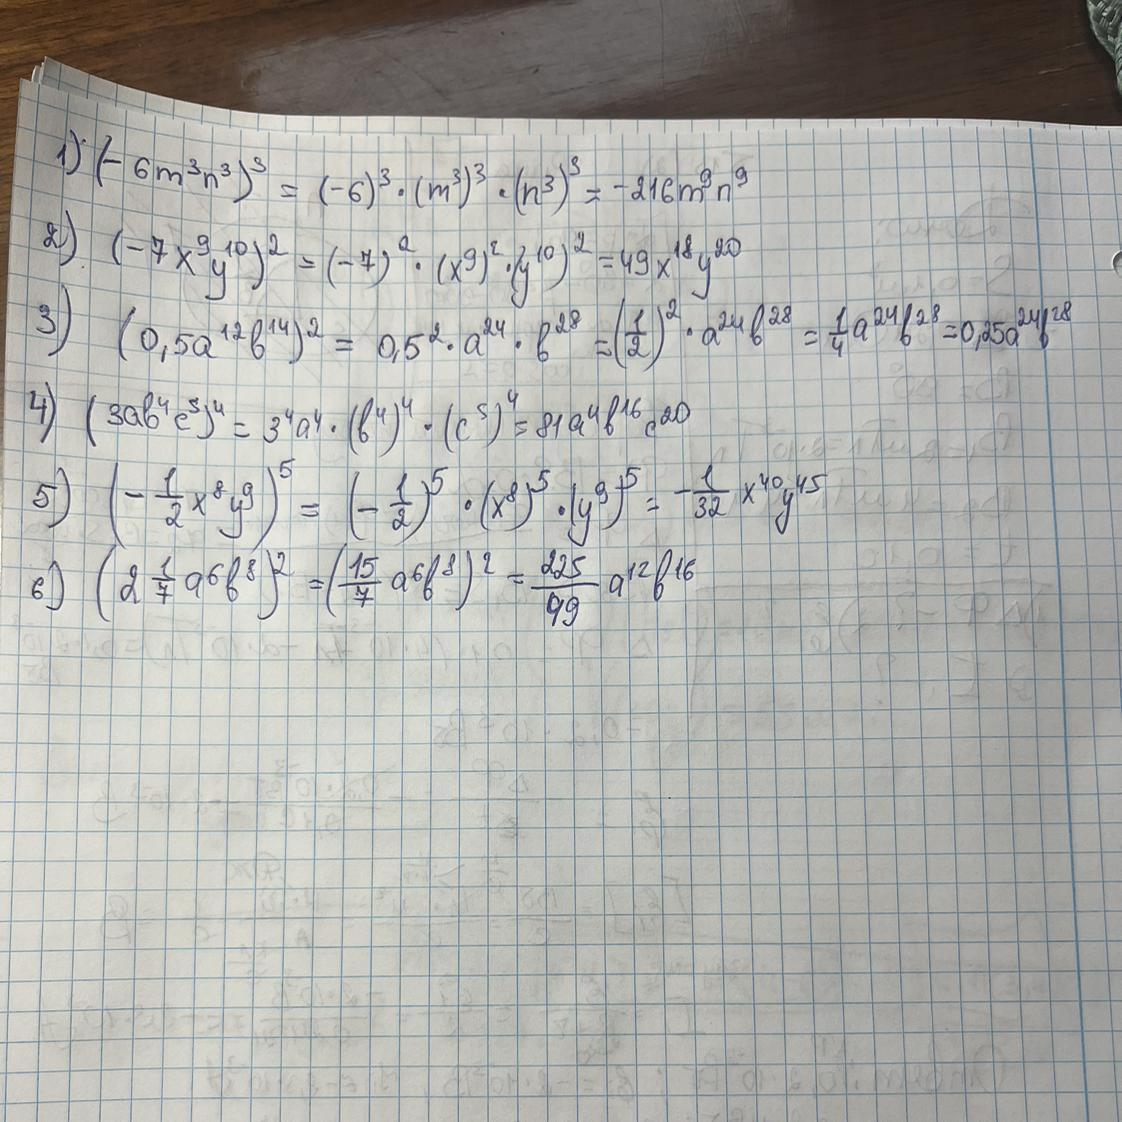 1) (-6m³n³)³ = (-6)³·(m³)³·(n³)³ = -216m⁹n⁹
2) (-7x⁹y¹⁰)² = (-7)²·(x⁹)²·(y¹⁰)² = 49x¹⁸y²⁰
3) (0,5a¹²b¹⁴)² = 0,5²·a²⁴·b²⁸ = (1/2)²·a²⁴b²⁸ = 1/4 a²⁴b²⁸ = 0,25a²⁴b²⁸
4) (3ab⁴c⁵)⁴ = 3⁴a⁴·(b⁴)⁴·(c⁵)⁴ = 81a⁴b¹⁶c²⁰
5) (-1/2 x⁸y⁹)⁵ = (-1/2)⁵·(x⁸)⁵·(y⁹)⁵ = -1/32 x⁴⁰y⁴⁵
6) (2 1/7 a⁶b⁸)² = (15/7 a⁶b⁸)² = 225/49 a¹²b¹⁶